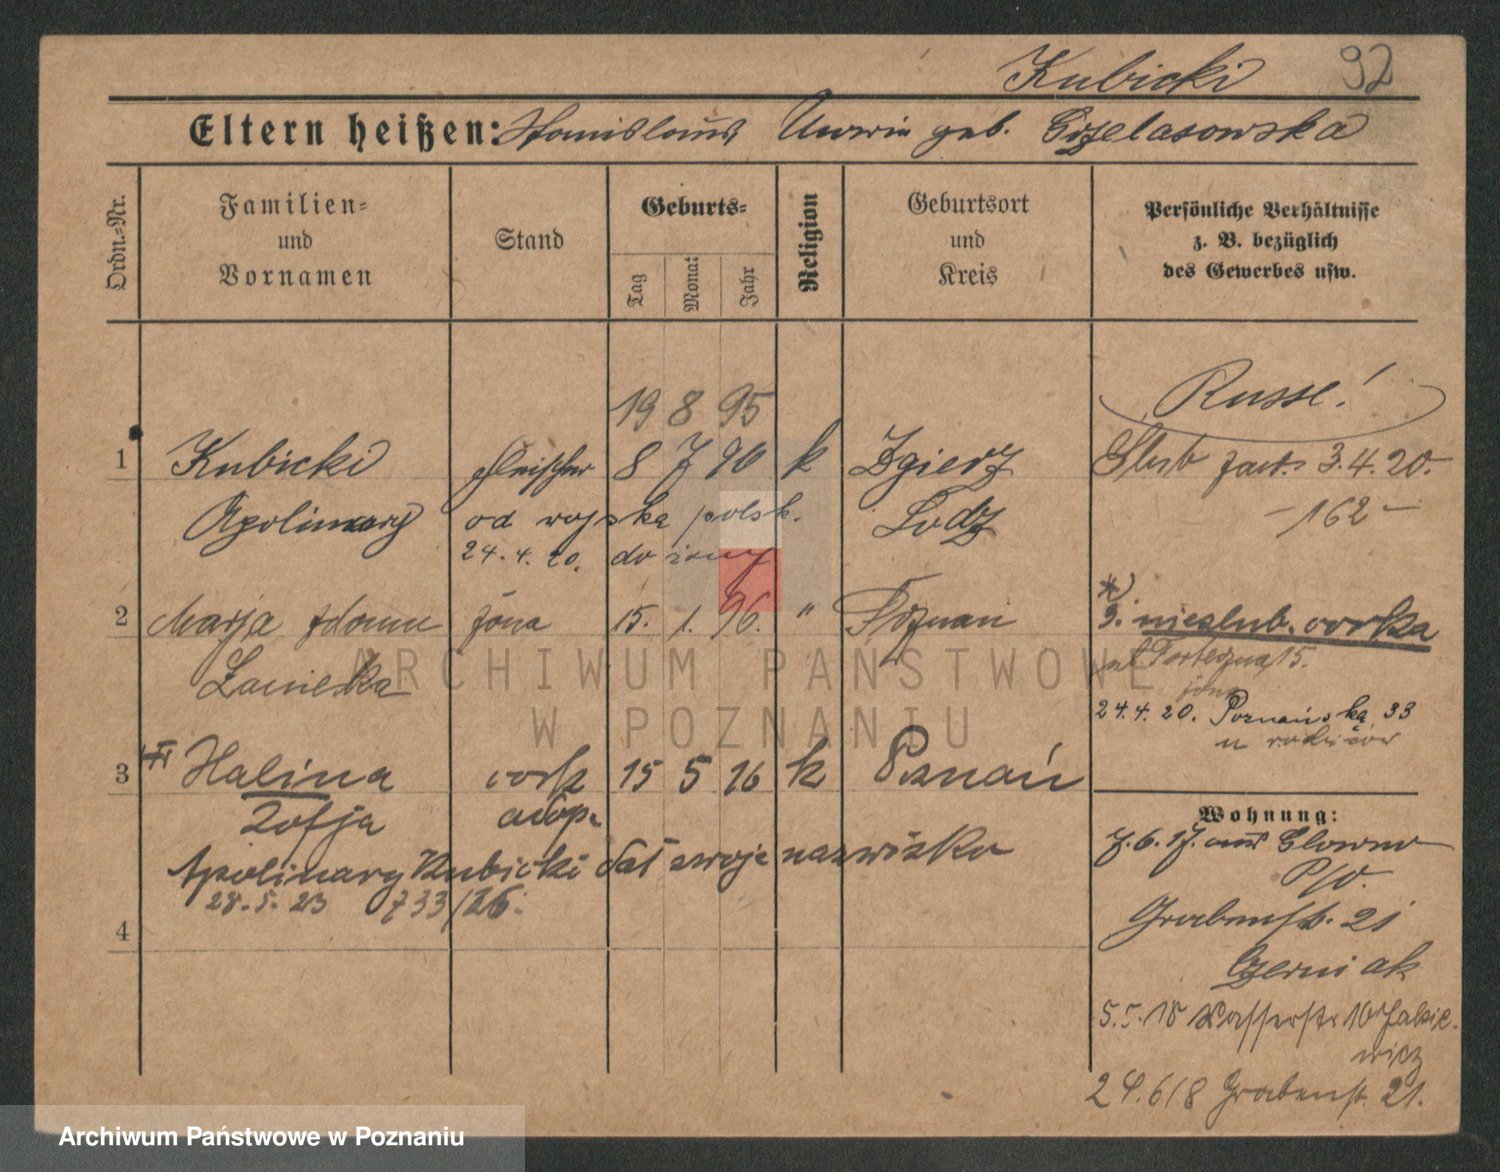 Kubicki 92
Eltern heißen: Stanislaus geb. Grzelasowska
Ordn.=Nr.
Familien=
und
Vornamen
Stand
Geburts=
Tag
Mona:
Jahr
Religion
Geburtsort
und
Kreis
Persönliche Verhältnisse
z. B. bezüglich
des Gewerbes usw.
Russe!
19 8 95
1 Kubicki Fleischer 8 7 90 k Zgierz
Ślub 3.4.20.
Apolinary od wojska polsk. Lodz
- 162 -
24.4.20. do żony
2 Marja zdomu żona 15. 1. 96. " Poznań
*) 3. nieslub. corka
Forteczna 15.
24.4.20. Poznańska 33
u rodziców
3 Halina corka 15 5 16 k Poznań
Zofja adop.
Apolinary Kubicki dał swoje nazwisko
28.5.23 733/26.
4
Wohnung:
7.6.17. aus Glowno
P/O.
Grabenstr. 21
Czerniak
5.5.18 Wasserstr. 10
wicz
24.618 Grabenst. 21.
ARCHIWUM PAŃSTWOWE
W POZNANIU
Archiwum Państwowe w Poznaniu